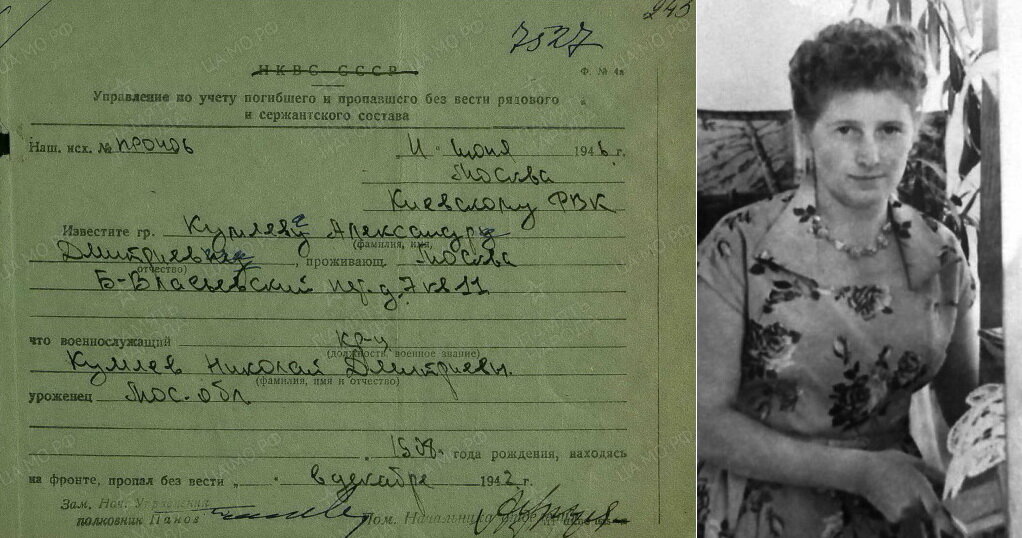 243
7527
НКВС СССР
Ф. № 4а
Управление по учету погибшего и пропавшего без вести рядового
и сержантского состава
Наш. исх. №
11 июня 1946 г.
Москва
Киевскому РВК
Известите гр. Александр
(фамилия, имя,
отчество) , проживающ. Москва
Б-Власьевский пер. д. 7 кв 11
что военнослужащий кр-ц
(должность, военное звание)
Кумлев Николай Дмитриевич
(фамилия, имя и отчество)
уроженец Мос. обл
1908 года рождения, находясь
на фронте, пропал без вести „ “ в декабре 1942 г.
Зам. Нач. Управления
полковник Панов
Пом. Начальника